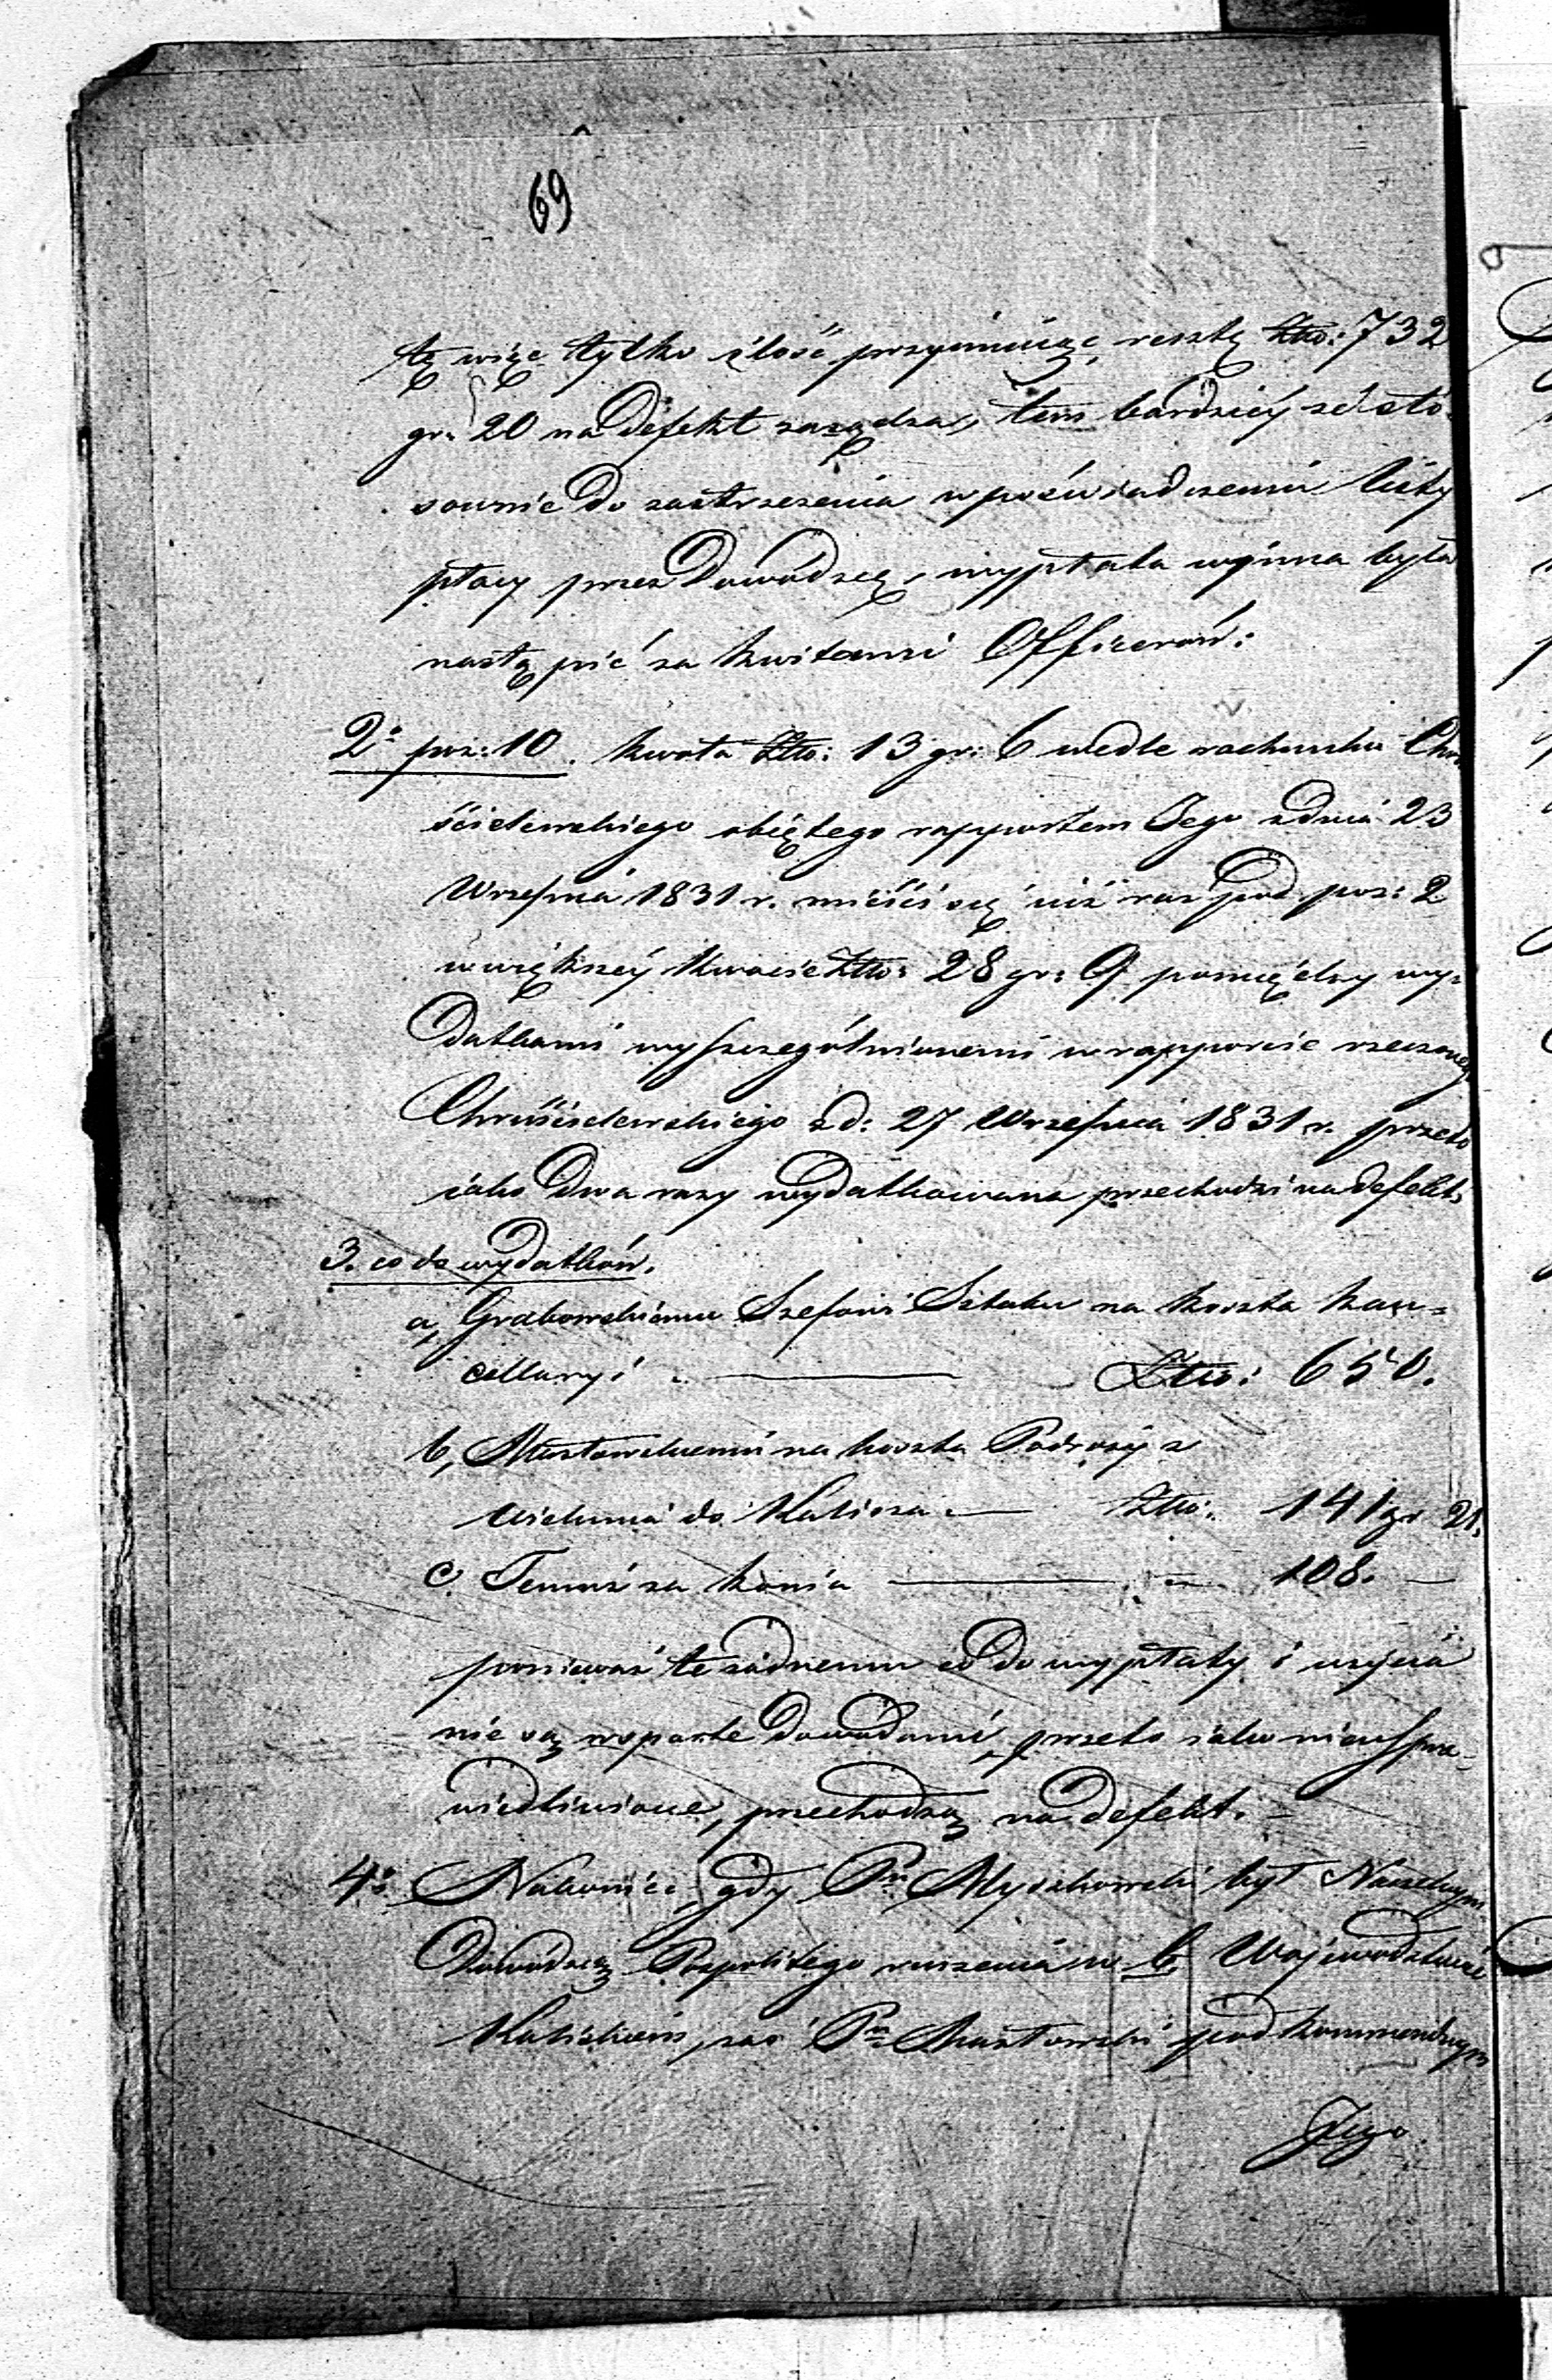 69
tę więc tylko ilość przyimuiąc, resztę Złto: 732
gr: 20 na defekt zarządza, tem bardziey że sto-
sownie do zastrzeżenia w poświadczeniu listy
płacy przez Dowódzcę, wypłata winna była
nastąpić za kwitami Officerów:
2° poz: 10. kwota Złto: 13 gr: 6 wedle rachunku Chru
ściclewskiego obiętego rapportem Jego z dnia 23
Września 1831 r. mieści się iuż raz pod poz: 2
w większey kwocie Złto: 28 gr: 9 pomiędzy wy-
datkami wyszczególnionemi w rapporcie rzeczonego
Chruściclewskiego z d: 27 Września 1831 r. przeto
iako dwa razy wydatkowana przechodzi na defekt,
3. co do wydatków.
a, Grabowskiemu Szefowi Sztabu na koszta Kan-
cellaryi Złto: 650.
b, Masłowskiemu na koszta Podroży z
Wielunia do Kalisza Złto: 141 gr 21.
c. Temuż za konia 108. —
ponieważ te żadnemu co do wypłaty i użycia
nie są wsparte dowodami, przeto iako nieuspra-
wiedliwione, przechodzą na defekt. —
4° Nakoniec, gdy Pn Myszkowski był Naczelnym
Dowódzcą Pospolitego ruszenia w b. Wojewodztwie
Kaliskiem, zaś Pn Masłowski pod kommendnym
Jego